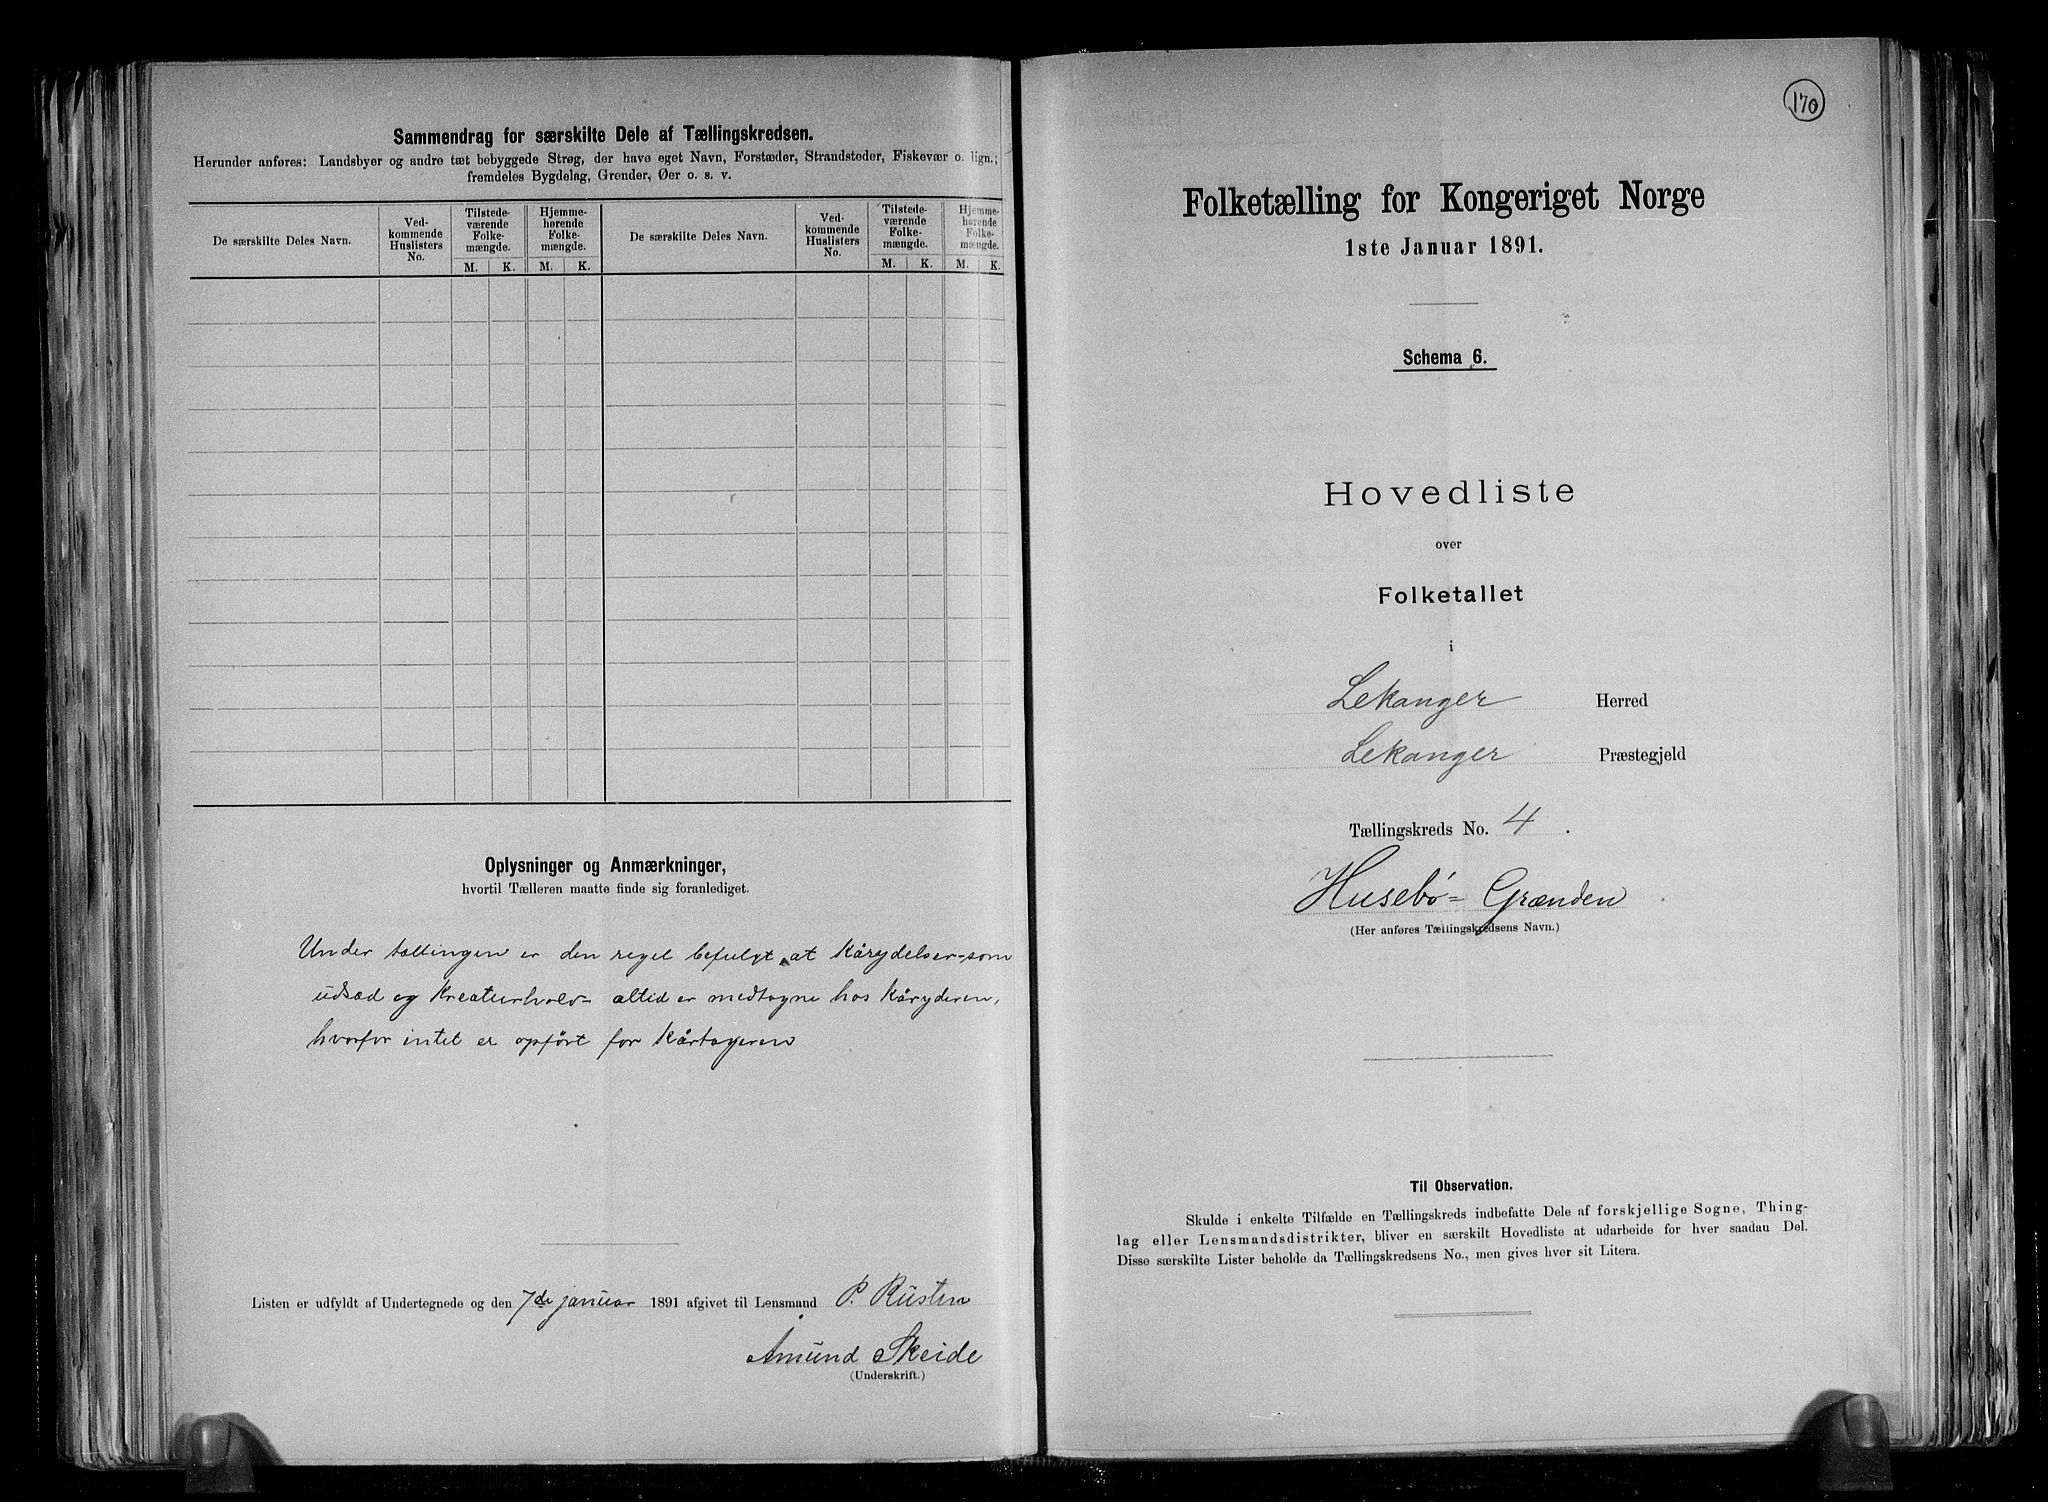 Sammendrag for særskilte Dele af Tællingskredsen.
Herunder anføres: Landsbyer og andre tæt bebyggede Strøg, der have eget Navn, Forstæder, Strandsteder, Fiskevær o. lign.;
fremdeles Bygdelag, Grender, Øer o. s. v.
De særskilte Deles Navn.
Ved-
kommende
Huslisters
No.
Tilstede-
værende
Folke-
mængde.
Hjemme-
hørende
Folke-
mængde.
De særskilte Deles Navn.
Ved-
kommende
Huslisters
No.
Tilstede-
værende
Folke-
mængde.
Hjemme-
hørende
Folke-
mængde.
M. K. M. K. M. K. M. K.
Oplysninger og Anmærkninger,
hvortil Tælleren maatte finde sig foranlediget.
Under tællingen er den regel befulgt at Kårydelser som
udsæd og Kreaturhold altid er medtagne hos Kåryderen,
hvorfor intet er opført for Kårtageren
Listen er udfyldt af Undertegnede og den 7de januar 1891 afgivet til Lensmand P. Rusten
Åmund Skeide
(Underskrift.)
170
Folketælling for Kongeriget Norge
1ste Januar 1891.
Schema 6.
Hovedliste
over
Folketallet
i
Lekanger Herred
Lekanger Præstegjeld
Tællingskreds No. 4.
Husebø= Grænden
(Her anføres Tællingskredsens Navn.)
Til Observation.
Skulde i enkelte Tilfælde en Tællingskreds indbefatte Dele af forskjellige Sogne, Thing-
lag eller Lensmandsdistrikter, bliver en særskilt Hovedliste at udarbeide for hver saadan Del.
Disse særskilte Lister beholde da Tællingskredsens No., men gives hver sit Litera.